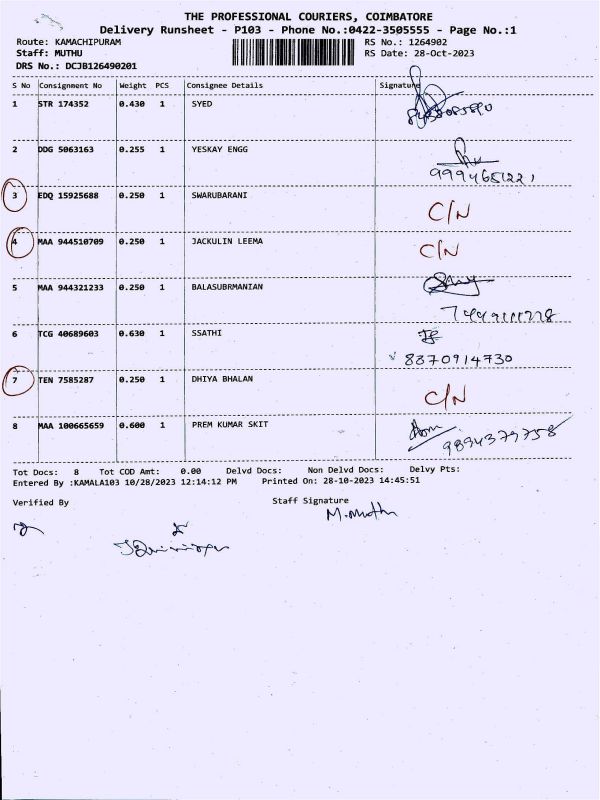 THE PROFESSIONAL COURIERS, COIMBATORE
Delivery Runsheet - P103 - Phone No.:0422-3505555 - Page No.:1
Route: KAMACHIPURAM RS No.: 1264902
Staff: MUTHU RS Date: 28-Oct-2023
DRS No.: DCJB126490201
S No Consignment No Weight PCS Consignee Details Signature
1 STR 174352 0.430 1 SYED
2 DDG 5063163 0.255 1 YESKAY ENGG
9994651221
3 EDQ 15925688 0.250 1 SWARUBARANI C/N
4 MAA 944510709 0.250 1 JACKULIN LEEMA C/N
5 MAA 944321233 0.250 1 BALASUBRMANIAN
6 TCG 40689603 0.630 1 SSATHI
8870914730
7 TEN 7585287 0.250 1 DHIYA BHALAN C/N
8 MAA 100665659 0.600 1 PREM KUMAR SKIT
9894379758
Tot Docs: 8 Tot COD Amt: 0.00 Delvd Docs: Non Delvd Docs: Delvy Pts:
Entered By :KAMALA103 10/28/2023 12:14:12 PM Printed On: 28-10-2023 14:45:51
Verified By Staff Signature
M.Muthu